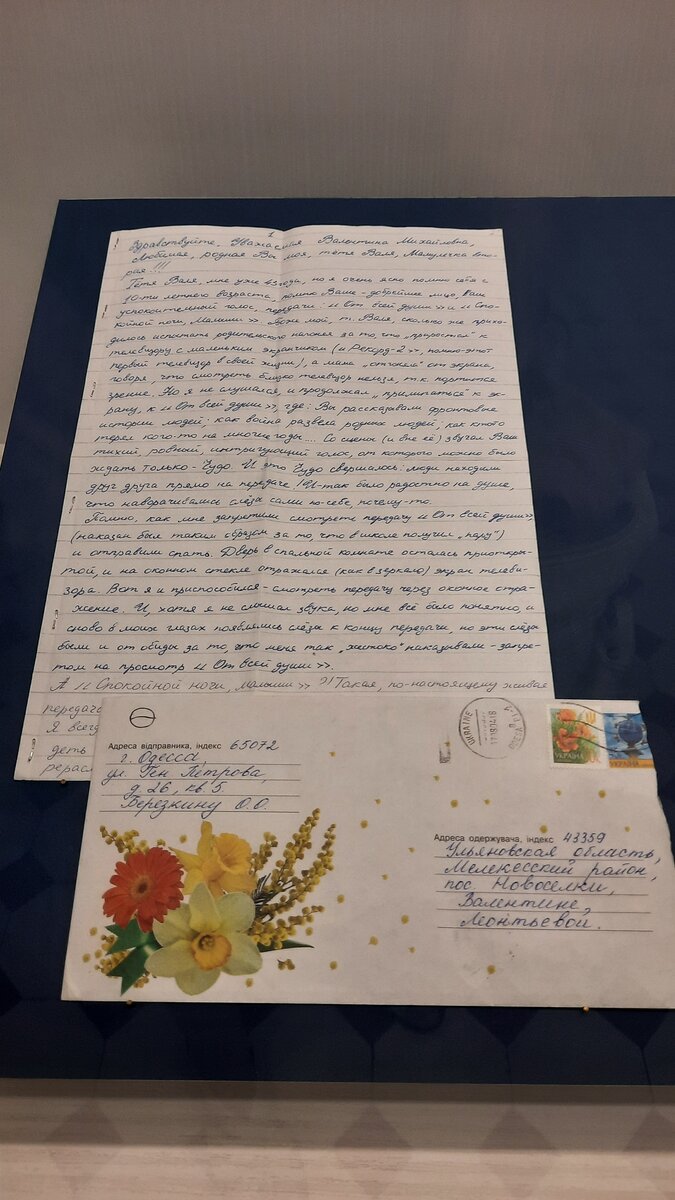 1
Здравствуйте, Уважаемая Валентина Михайловна,
Любимая, родная Вы моя, тётя Валя, Мамулечка вто-
рая !!!
Тётя Валя, мне уже 43 года, но я очень ясно помню себя с
10-ти летнего возраста, помню Ваше - добрейшее лицо, Ваш
успокоительный голос, передачи: «От всей души» и «Спо-
койной ночи, Малыши». Боже мой, т. Валя, сколько же прихо-
дилось испытать родительского нагоняя за то, что „прирастал" к
телевизору с маленьким экранчиком («Рекорд-2», помню - этот
первый телевизор в своей жизни), а мама „отгоняла" от экрана,
говоря, что смотреть близко телевизор нельзя, т.к. портится
зрение. Но я не слушался, и продолжал „прилипаться" к эк-
рану, к «От всей души», где: Вы рассказывали фронтовые
истории людей; как война развела родных людей, как кто-то
терял кого-то на многие годы... Со сцены (и вне её) звучал Ваш
тихий, ровный, интригующий голос, от которого можно было
ждать только - Чудо. И это Чудо свершалось: люди находили
друг друга прямо на передаче! И так было радостно на душе,
что наворачивались слёзы сами по-себе, почему-то.
Помню, как мне запретили смотреть передачу «От всей души»
(наказан был таким образом за то, что в школе получил „пару")
и отправили спать. Дверь в спальной комнате осталась приоткры-
той, и на оконном стекле отражался (как в зеркало) экран телеви-
зора. Вот я и приспособился - смотреть передачу через оконное отра-
жение. И, хотя я не слышал звука, но мне всё было понятно, и
снова в моих глазах появлялись слёзы к концу передачи, но эти слёзы
были и от обиды за то, что меня так „жестоко" наказывали - запре-
том на просмотр «От всей души».
А «Спокойной ночи, малыши» ?! Такая, по-настоящему живая
передача
Я всегд
деть
рерас
UKRAINE
ODESA
УКРАЇНА
УКРАЇНА
Адреса відправника, індекс 65072
г. Одесса,
ул. Ген. Петрова,
д. 26, кв. 5
Березкину О.О.
Адреса одержувача, індекс 43359
Ульяновская область,
Мелекесский район,
пос. Новоселки,
Валентине,
Леонтьевой.